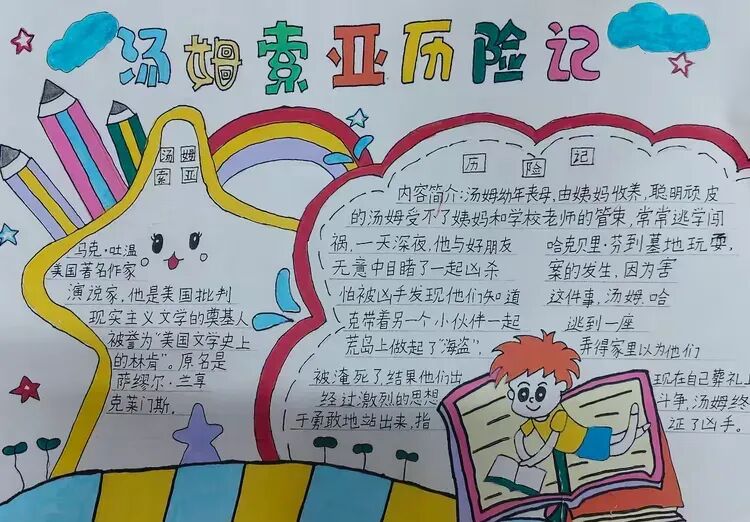 汤姆索亚历险记
汤姆
索亚
马克·吐温
美国著名作家
演说家，他是美国批判
现实主义文学的奠基人
被誉为“美国文学史上
的林肯”。原名是
萨缪尔·兰亨
克莱门斯，
历险记
内容简介：汤姆幼年丧母，由姨妈收养，聪明顽皮
的汤姆受不了姨妈和学校老师的管束，常常逃学闯
祸，一天深夜，他与好朋友 哈克贝里·芬到墓地玩耍，
无意中目睹了一起凶杀 案的发生，因为害
怕被凶手发现他们知道 这件事，汤姆·哈
克带着另一个小伙伴一起 逃到一座
荒岛上做起了“海盗”， 弄得家里以为他们
被淹死了，结果他们出 现在自己葬礼上
经过激烈的思想 斗争，汤姆终
于勇敢地站出来，指 证了凶手。